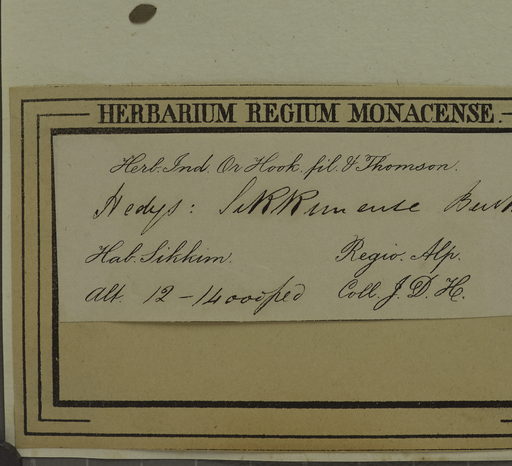 HERBARIUM REGIUM MONACENSE.
Herb. Ind. Or Hook. fil. & Thomson.
Hedys: Sikkimense
Hab. Sikkim. Regio. Alp.
Alt. 12-14000 ped Coll. J. D. H.